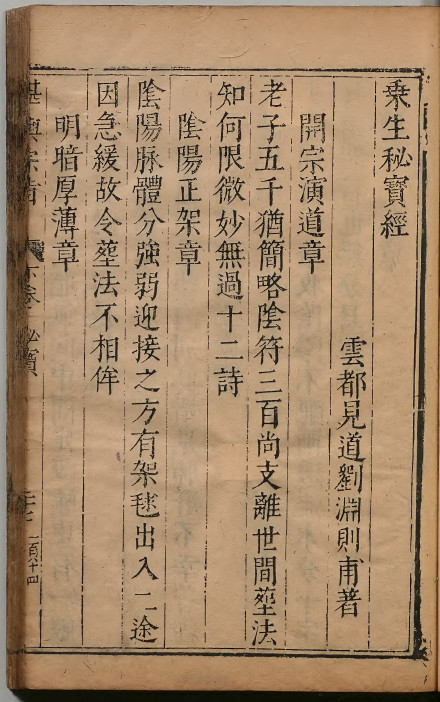 乗生秘寶經
雲都見道劉淵則甫著
開宗演道章
老子五千猶簡略陰符三百尚支離世間塟法
知何限微妙無過十二詩
陰陽正架章
陰陽脉體分強弱迎接之方有架毬出入二途
因急緩故令塟法不相侔
明暗厚薄章
堪輿宗旨
下卷
秘寶
一百六十四